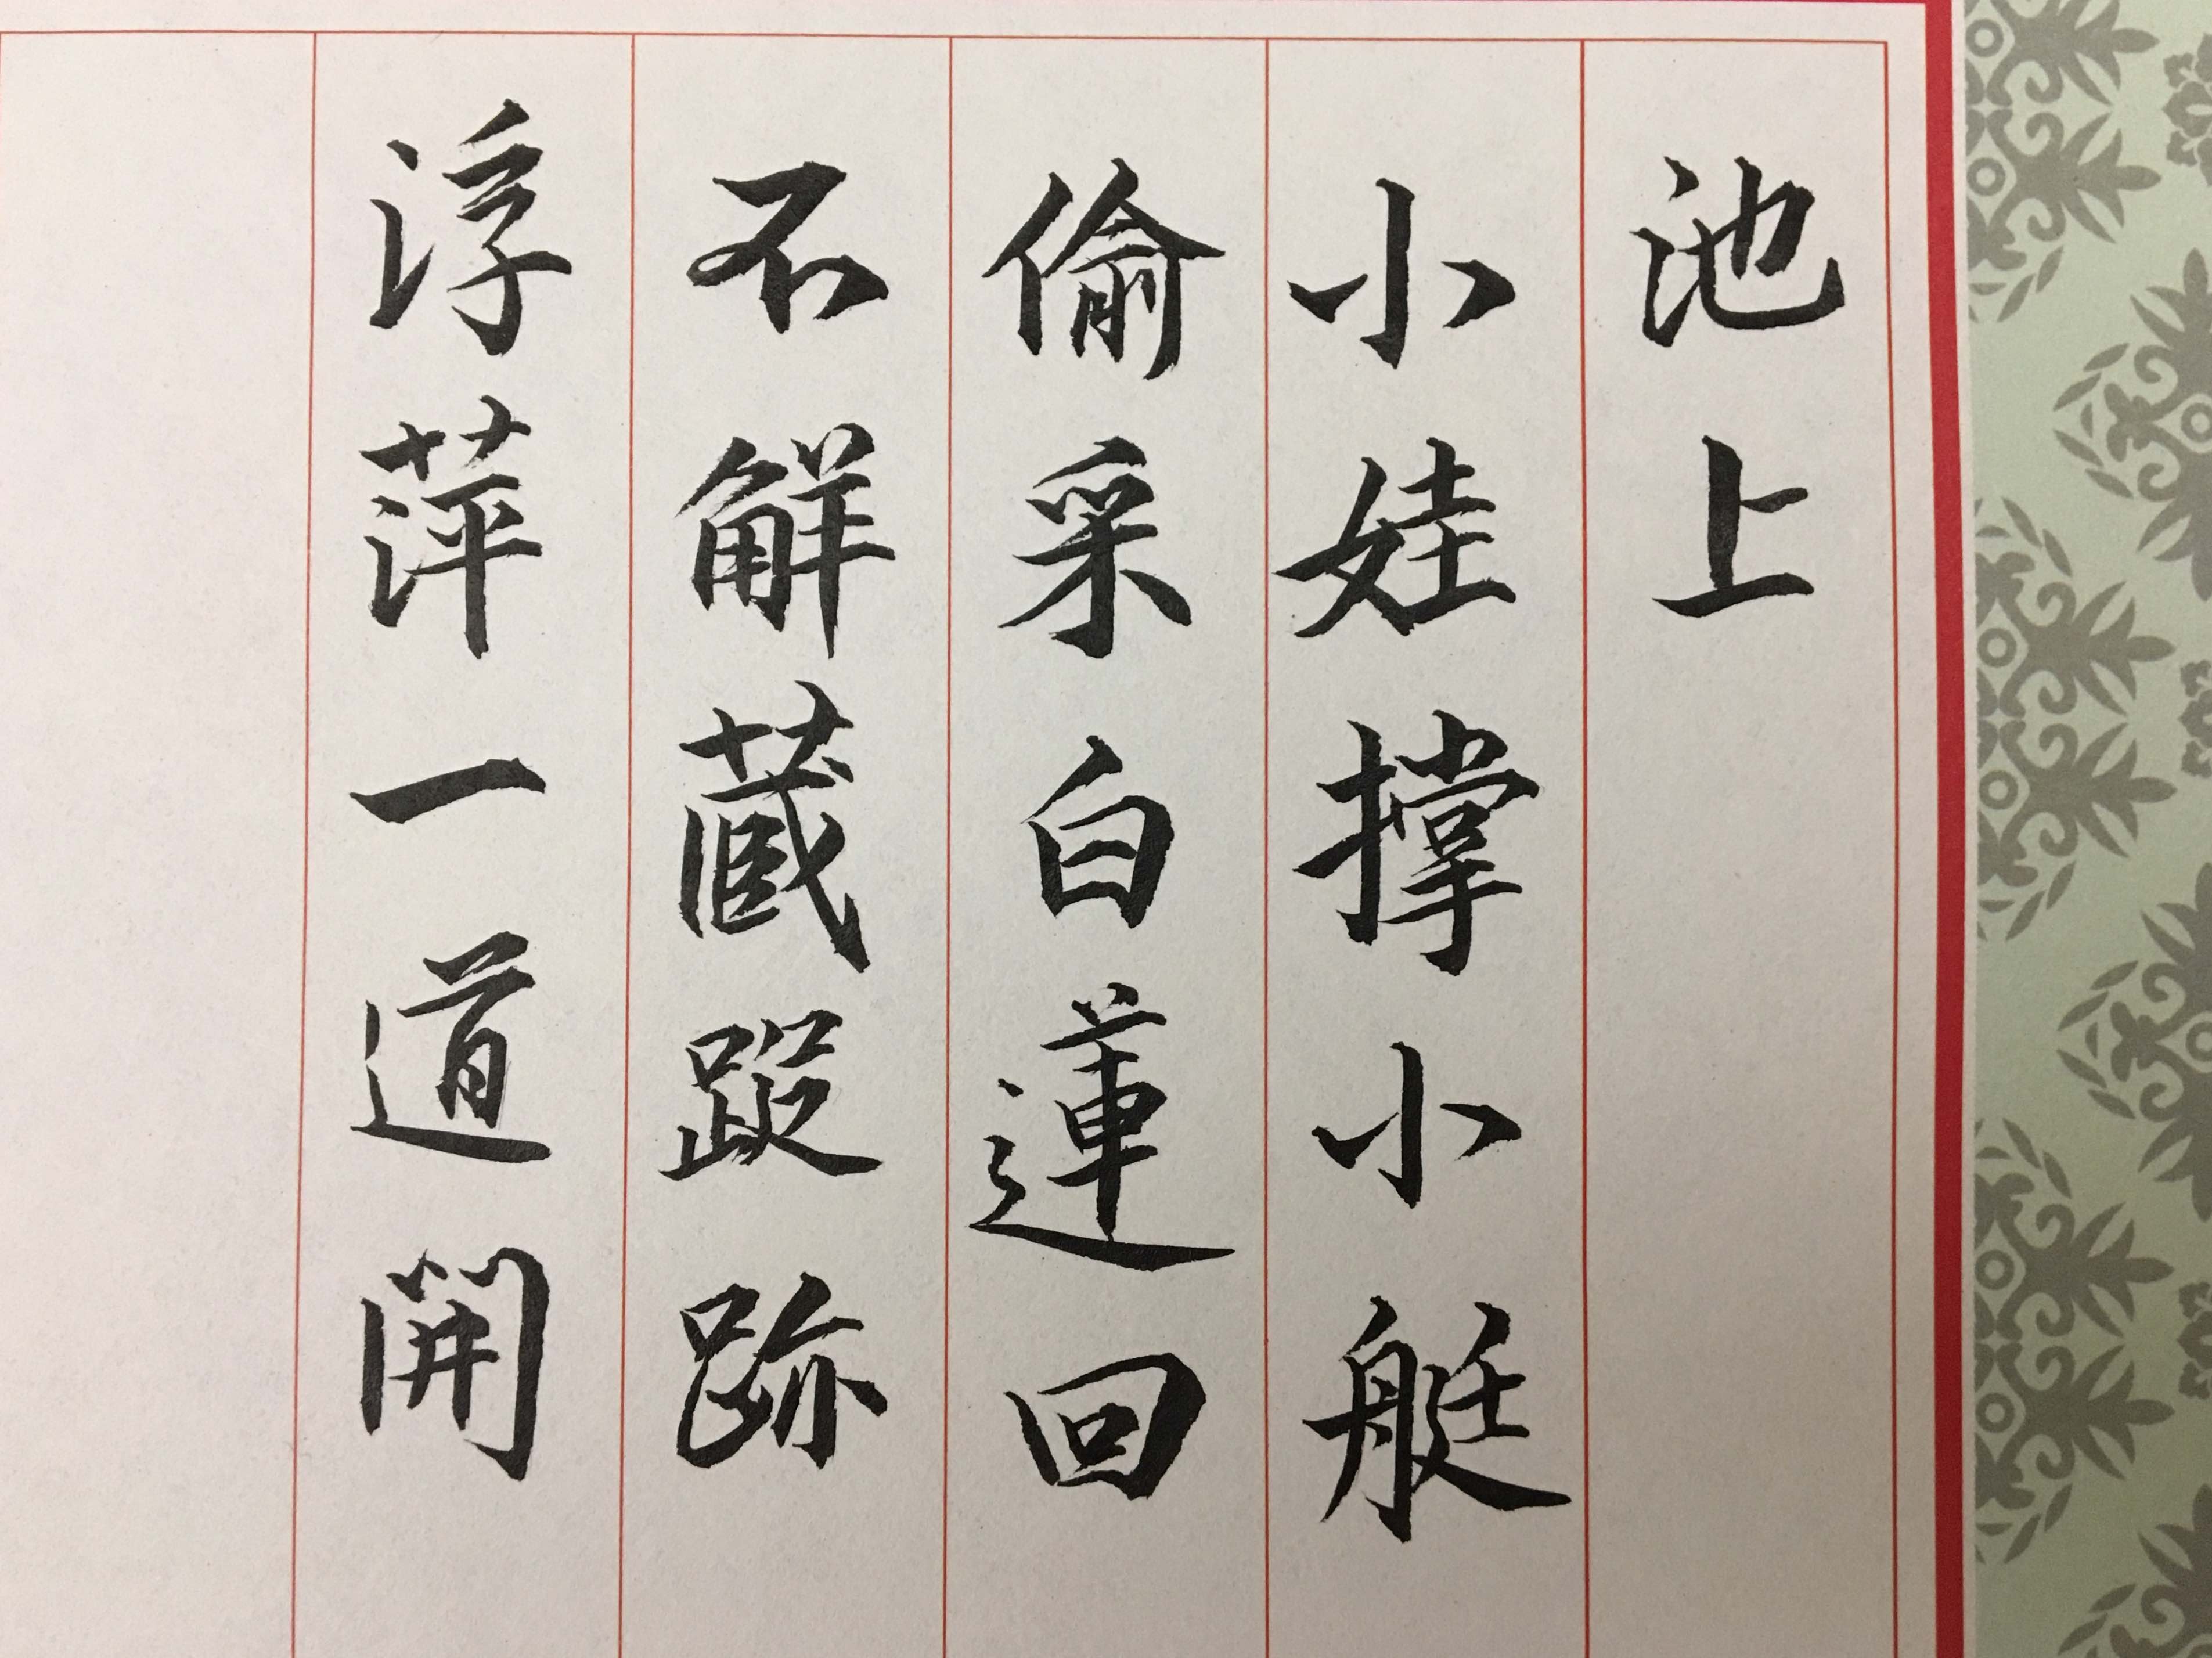 池上
小娃撐小艇
偷采白蓮回
不解藏蹤跡
浮萍一道開